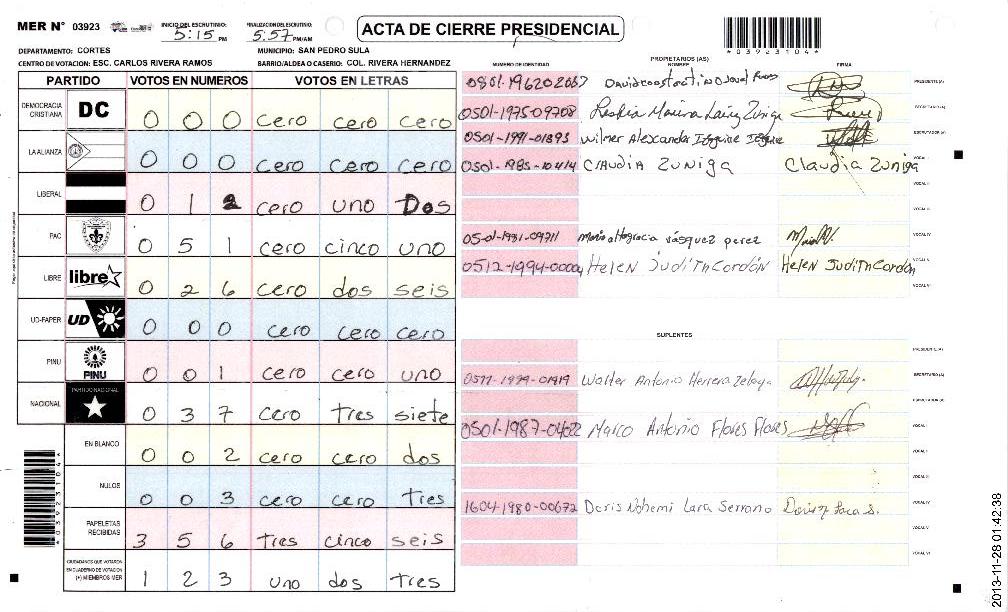 MER N° 03923
INICIO DEL ESCRUTINIO: 5:15 PM
FINALIZACION DEL ESCRUTINIO: 5:57 PM/AM
ACTA DE CIERRE PRESIDENCIAL
*03923104*
DEPARTAMENTO: CORTES
MUNICIPIO: SAN PEDRO SULA
CENTRO DE VOTACION: ESC. CARLOS RIVERA RAMOS
BARRIO/ALDEA O CASERIO: COL. RIVERA HERNANDEZ
PARTIDO VOTOS EN NUMEROS VOTOS EN LETRAS
DEMOCRACIA CRISTIANA DC 0 0 0 cero cero cero
LA ALIANZA 0 0 0 cero cero cero
LIBERAL 0 1 2 cero uno Dos
PAC 0 5 1 cero cinco uno
LIBRE libre 0 2 6 cero dos seis
UD-FAPER UD 0 0 0 cero cero cero
PINU PINU 0 0 1 cero cero uno
NACIONAL PARTIDO NACIONAL 0 3 7 cero tres siete
EN BLANCO 0 0 2 cero cero dos
NULOS 0 0 3 cero cero tres
PAPELETAS RECIBIDAS 3 5 6 tres cinco seis
CIUDADANOS QUE VOTARON EN CUADERNO DE VOTACION (+) MIEMBROS MER 1 2 3 uno dos tres
*03923104*
PROPIETARIOS (AS)
NUMERO DE IDENTIDAD NOMBRE FIRMA
PRESIDENTE(A)
0501-1975-09708 Leskia Marina Lainez Zuniga SECRETARIO(A)
0501-1991-01893 Wilmer Alexander Izguirre Izguirre ESCRUTADOR (A)
0501-1985-10414 CLAUDIA ZUNIGA Claudia Zuniga VOCAL I
VOCAL II
VOCAL III
0501-1981-09711 Maria altagracia vásquez perez VOCAL IV
0512-1994-00009 Helen Judith Cordón Helen Judith Cordón VOCAL V
VOCAL VI
SUPLENTES
PRESIDENTE(A)
Walter Antonio Herrera Zelaya SECRETARIO (A)
ESCRUTADOR (A)
0501-1987-0402 Marco Antonio Flores Flores VOCAL I
VOCAL II
VOCAL III
1604-1980-00672 Doris Nohemi Lara Serrano Doris N Lara S. VOCAL IV
VOCAL V
VOCAL VI
2013-11-28 01:42:38